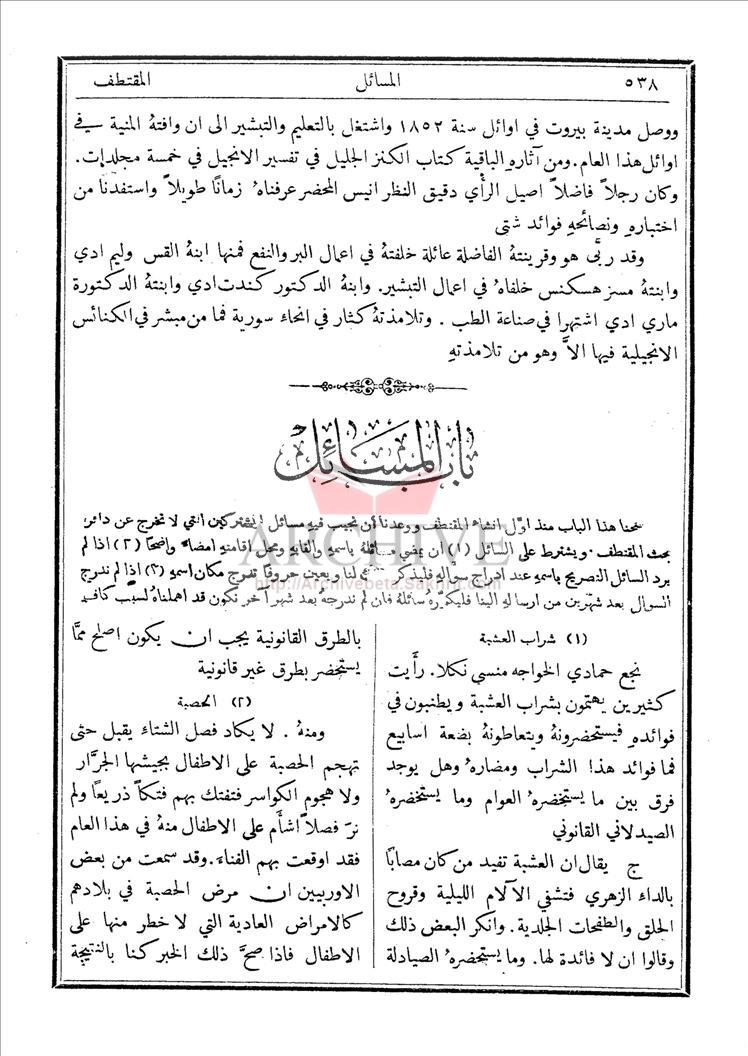 ٥٣٨ المسائل المقتطف
ووصل مدينة بيروت في اوائل سنة ١٨٥٢ واشتغل بالتعليم والتبشير الى ان وافتهُ المنية في
اوائل هذا العام . ومن آثارهِ الباقية كتاب الكنز الجليل في تفسير الانجيل في خمسة مجلدات .
وكان رجلاً فاضلاً اصيل الرأي دقيق النظر انيس المحضر عرفناهُ زمانًا طويلاً واستفدنا من
اختبارهِ ونصائحهِ فوائد شتى
وقد ربَّى هو وقرينتهُ الفاضلة عائلة خلفتهُ في اعمال البر والنفع فمنها ابنهُ القس وليم ادي
وابنتهُ مسز هسكنس خلفاهُ في اعمال التبشير. وابنهُ الدكتور كندت ادي وابنتهُ الدكتورة
ماري ادي اشتهرا في صناعة الطب . وتلامذتهُ كثار في انحاء سورية فما من مبشر في الكنائس
الانجيلية فيها الاَّ وهو من تلامذتهِ
باب المسائل
فتحنا هذا الباب منذ اوّل انشاء المقتطف ووعدنا ان نجيب فيهِ مسائل المشتركين التي لا تخرج عن دائرة
بحث المقتطف . ويشترط على السائل (١) ان يمضي مسائلهُ باسمهِ والقابهِ ومحل اقامتهِ امضاءً واضحًا (٢) اذا لم
يرد السائل التصريح باسمهِ عند ادراج سؤالهِ فليذكر لنا ويعين حروفًا تدرج مكان اسمهِ (٣) اذا لم ندرج
السوال بعد شهرين من ارسالهِ الينا فليكررهُ سائلهُ فان لم ندرجهُ بعد شهر آخر نكون قد اهملناهُ لسبب كافٍ
(١) شراب العشبة
نجع حمادي الخواجه منسي نكلا . رأيت
كثيرين يهتمون بشراب العشبة ويطنبون في
فوائدهِ فيستحضرونهُ ويتعاطونهُ بضعة اسابيع
فما فوائد هذا الشراب ومضارهُ وهل يوجد
فرق بين ما يستحضرهُ العوام وما يستحضرهُ
الصيدلاني القانوني
ج يقال ان العشبة تفيد من كان مصابًا
بالداء الزهري فتشفي الآلام الليلية وقروح
الحلق والطفحات الجلدية . وانكر البعض ذلك
وقالوا ان لا فائدة لها . وما يستحضرهُ الصيادلة
بالطرق القانونية يجب ان يكون اصلح ممَّا
يستحضر بطرق غير قانونية
(٢) الحصبة
ومنهُ . لا يكاد فصل الشتاء يقبل حتى
تهجم الحصبة على الاطفال بجيشها الجرَّار
ولا هجوم الكواسر فتفتك بهم فتكًا ذريعًا ولم
نرَ فصلاً اشأم على الاطفال منهُ في هذا العام
فقد اوقعت بهم الفناء . وقد سمعت من بعض
الاوربيين ان مرض الحصبة في بلادهم
كالامراض العادية التي لا خطر منها على
الاطفال فاذا صحَّ ذلك الخبر كنا بالنتيجة
ARCHIVE
http://Archivebeta.Sakhrit.com